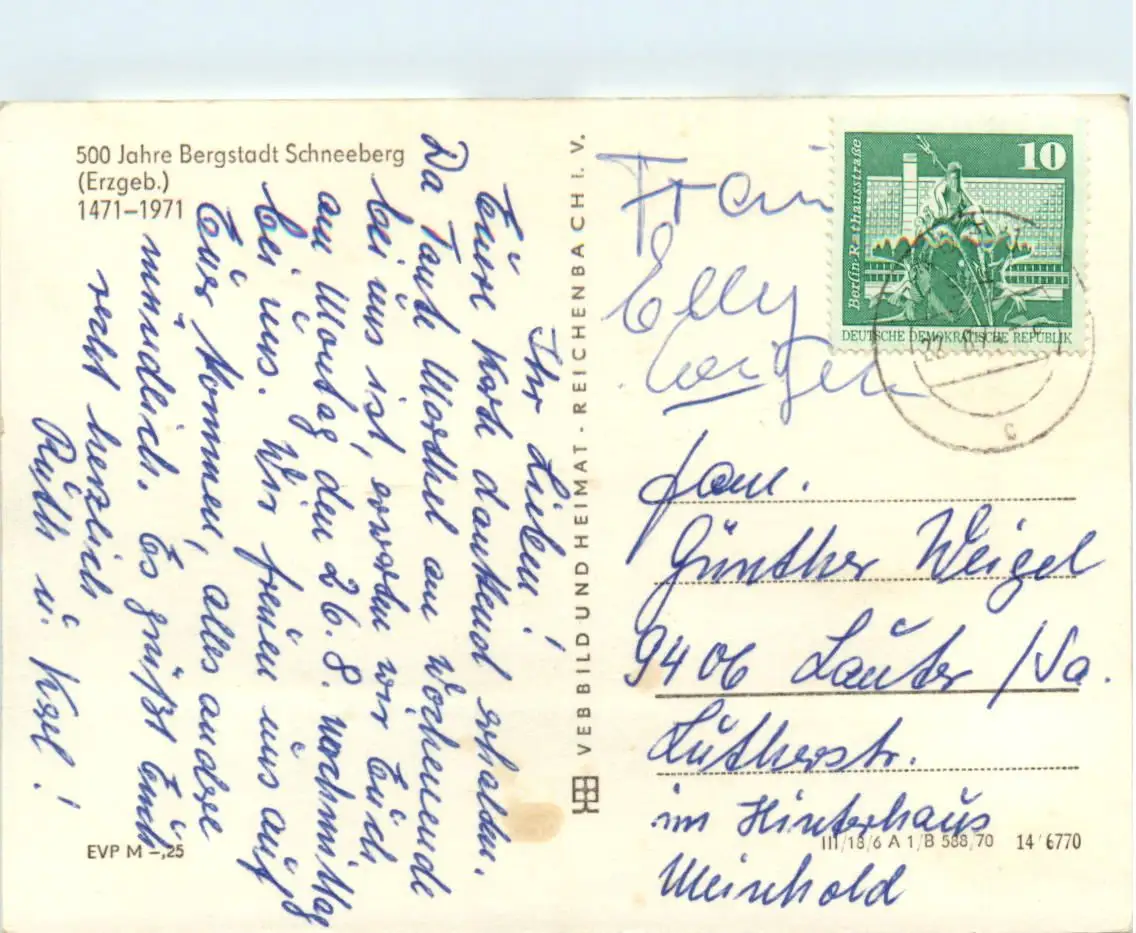 500 Jahre Bergstadt Schneeberg
(Erzgeb.)
1471–1971
Ihr Lieben!
Eure Karte dankend erhalten.
Da Tante Marthel am Wochenende
bei uns ist, erwarten wir Euch
am Montag den 26.8. nachmittag
bei uns. Wir freuen uns auf
Euer Kommen, alles andere
mündlich. Es grüßt Euch
recht herzlich
Ruth u. Karl!
EVP M –,25
VEB BILD UND HEIMAT - REICHENBACH I. V.
Frau
Elly
10
Berlin-Rathausstraße
DEUTSCHE DEMOKRATISCHE REPUBLIK
c
Fam.
Günther Weigel
9406 Lauter /Sa.
Lutherstr.
im Hinterhaus
Meinhold
III/18/6 A 1/B 588/70 14 6770